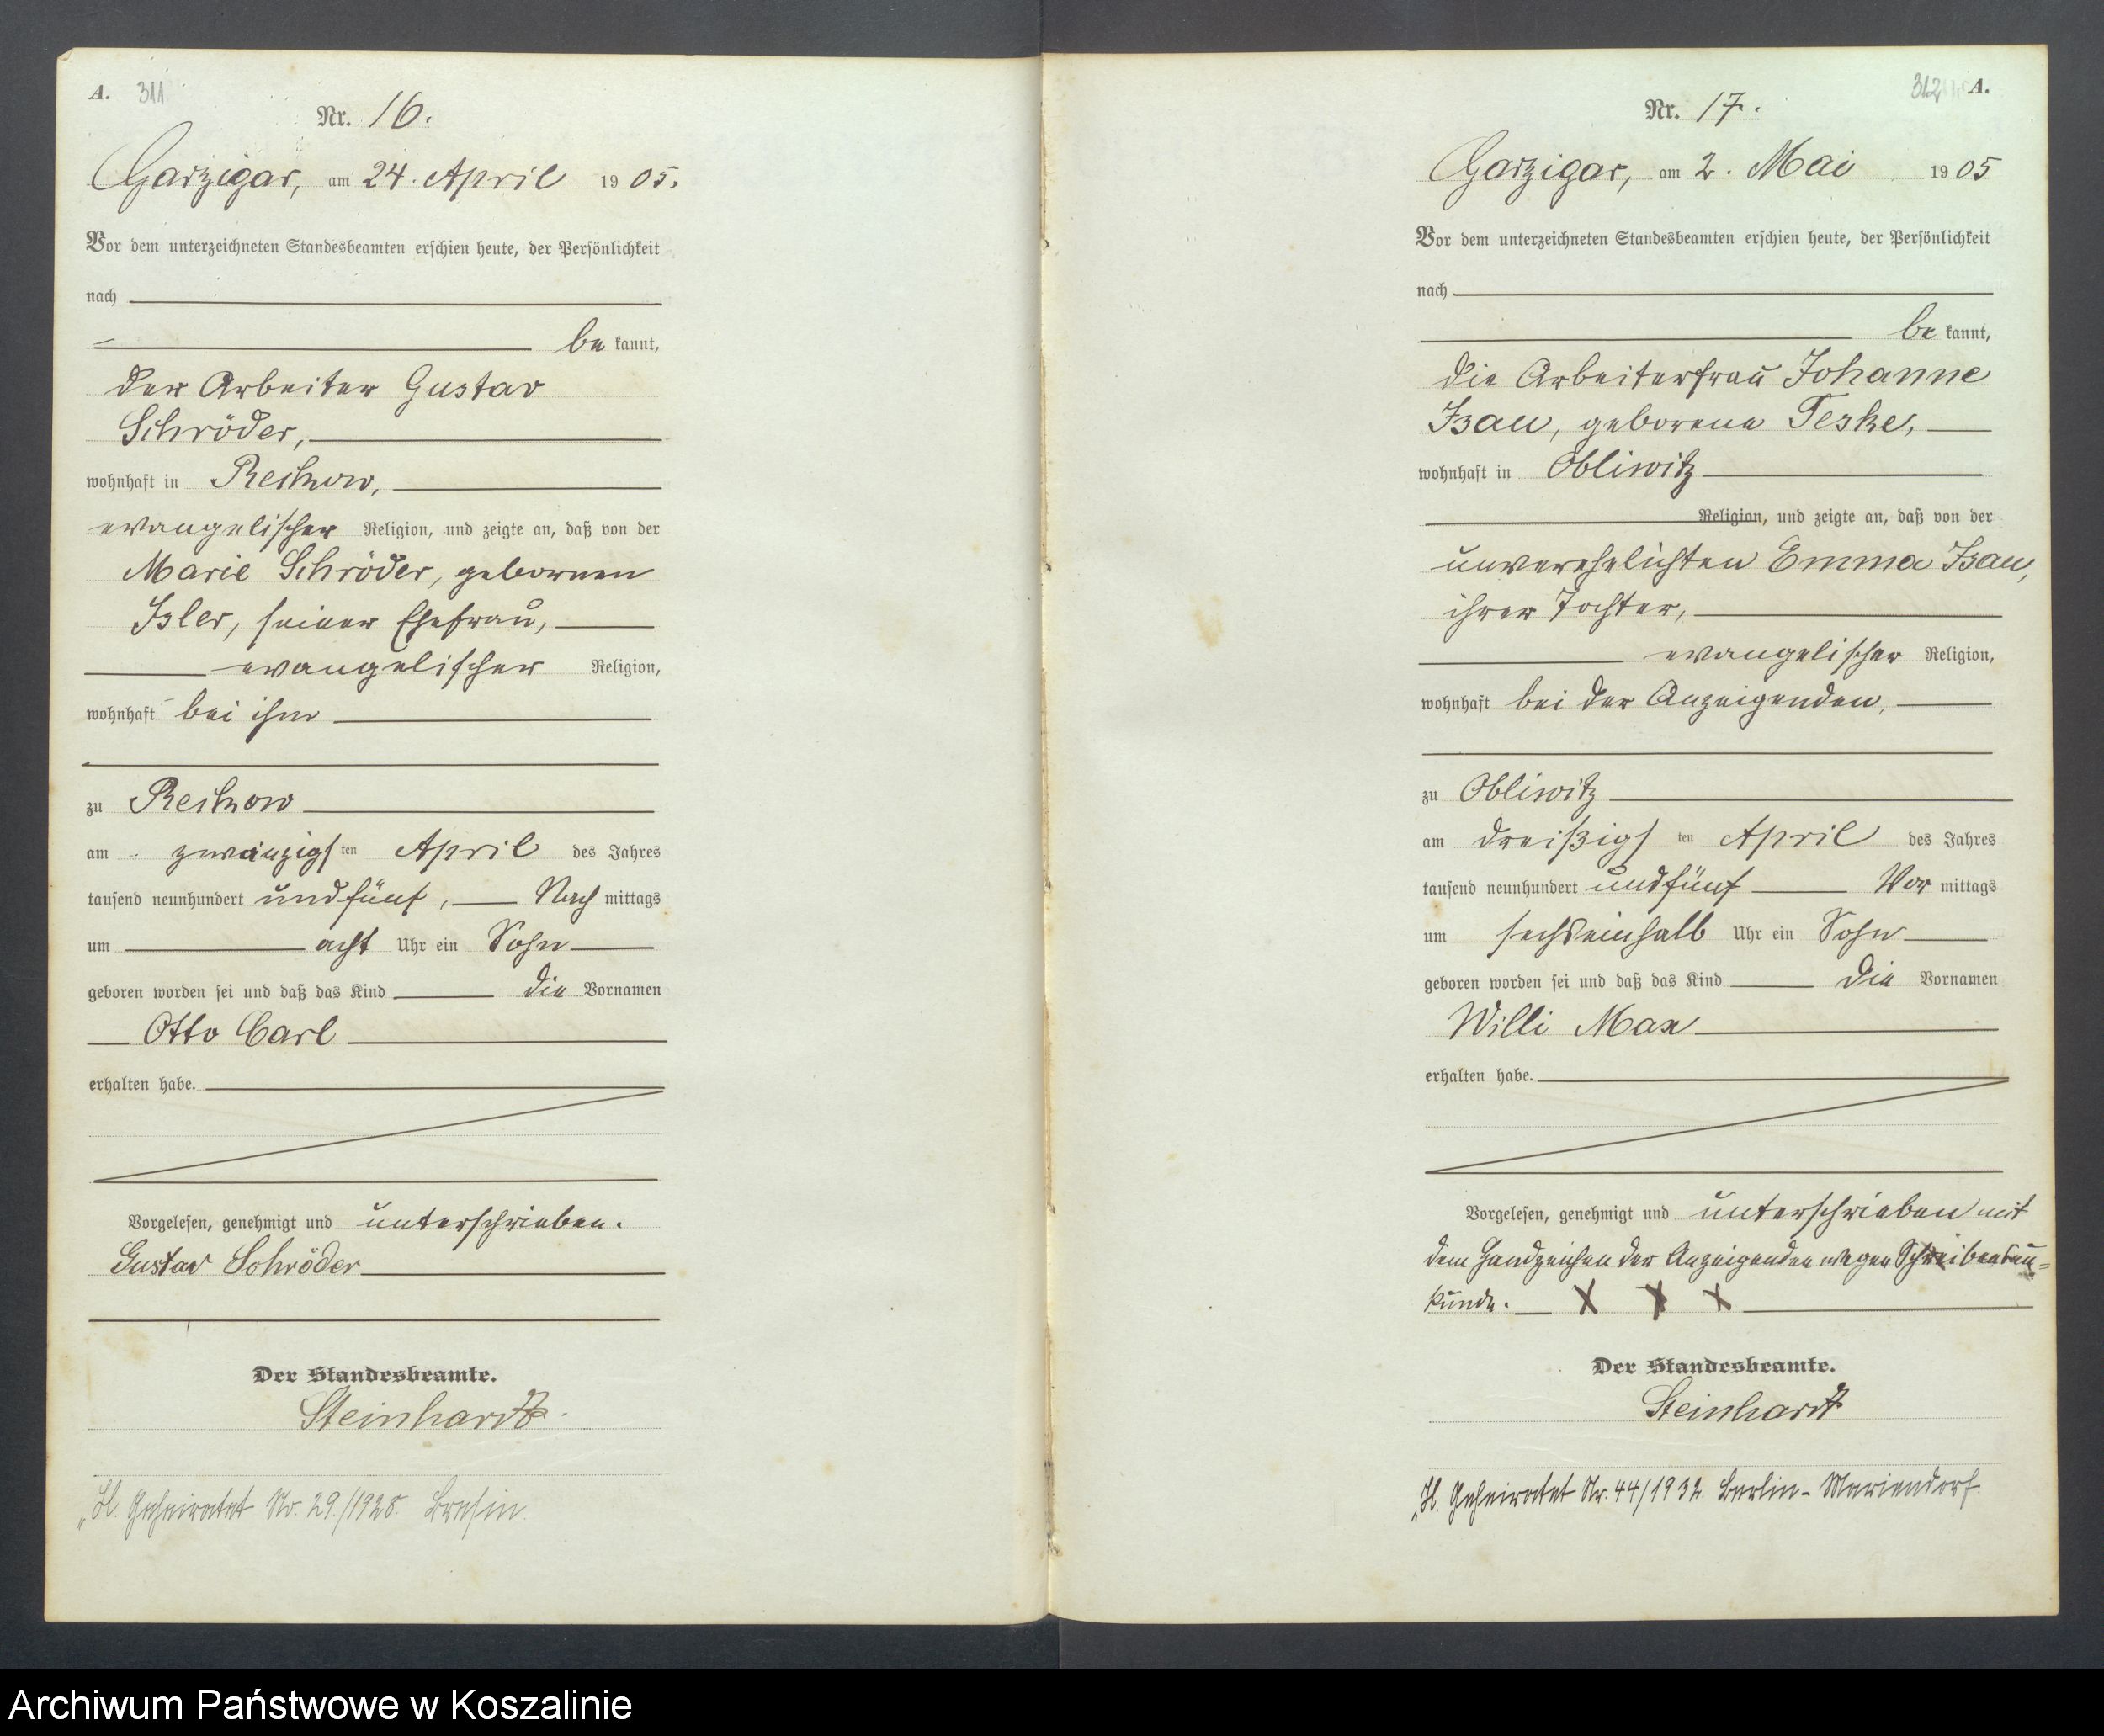 A. 311
Nr. 16.
Garzigar, am 24. April 1905.
Vor dem unterzeichneten Standesbeamten erschien heute, der Persönlichkeit
nach
be kannt,
der Arbeiter Gustav
Schröder,
wohnhaft in Reckow,
evangelischer Religion, und zeigte an, daß von der
Marie Schröder, gebornen
Isler, seiner Ehefrau,
evangelischer Religion,
wohnhaft bei ihm
zu Reckow
am zwanzigsten April des Jahres
tausend neunhundert undfünf, Nach mittags
um acht Uhr ein Sohn
geboren worden sei und daß das Kind die Vornamen
Otto Carl
erhalten habe.
Vorgelesen, genehmigt und unterschrieben.
Gustav Schröder
Der Standesbeamte.
Steinhardt.
„H. Geheiratet Nr. 29./1928. Bresin.
312 A.
Nr. 17.
Garzigar, am 2. Mai 1905
Vor dem unterzeichneten Standesbeamten erschien heute, der Persönlichkeit
nach
be kannt,
die Arbeiterfrau Johanne
Isau, geborene Teske,
wohnhaft in Obliwitz
Religion, und zeigte an, daß von der
unverehelichten Emma Isau,
ihrer Tochter,
evangelischer Religion,
wohnhaft bei der Anzeigenden,
zu Obliwitz
am dreißigsten April des Jahres
tausend neunhundert undfünf Vor mittags
um sechseinhalb Uhr ein Sohn
geboren worden sei und daß das Kind die Vornamen
Willi Max
erhalten habe.
Vorgelesen, genehmigt und unterschrieben mit
dem Handzeichen der Anzeigenden wegen Schreibensun=
kunde. X X X
Der Standesbeamte.
Steinhardt
„H. Geheiratet Nr. 44/1932. Berlin-Mariendorf.
Archiwum Państwowe w Koszalinie